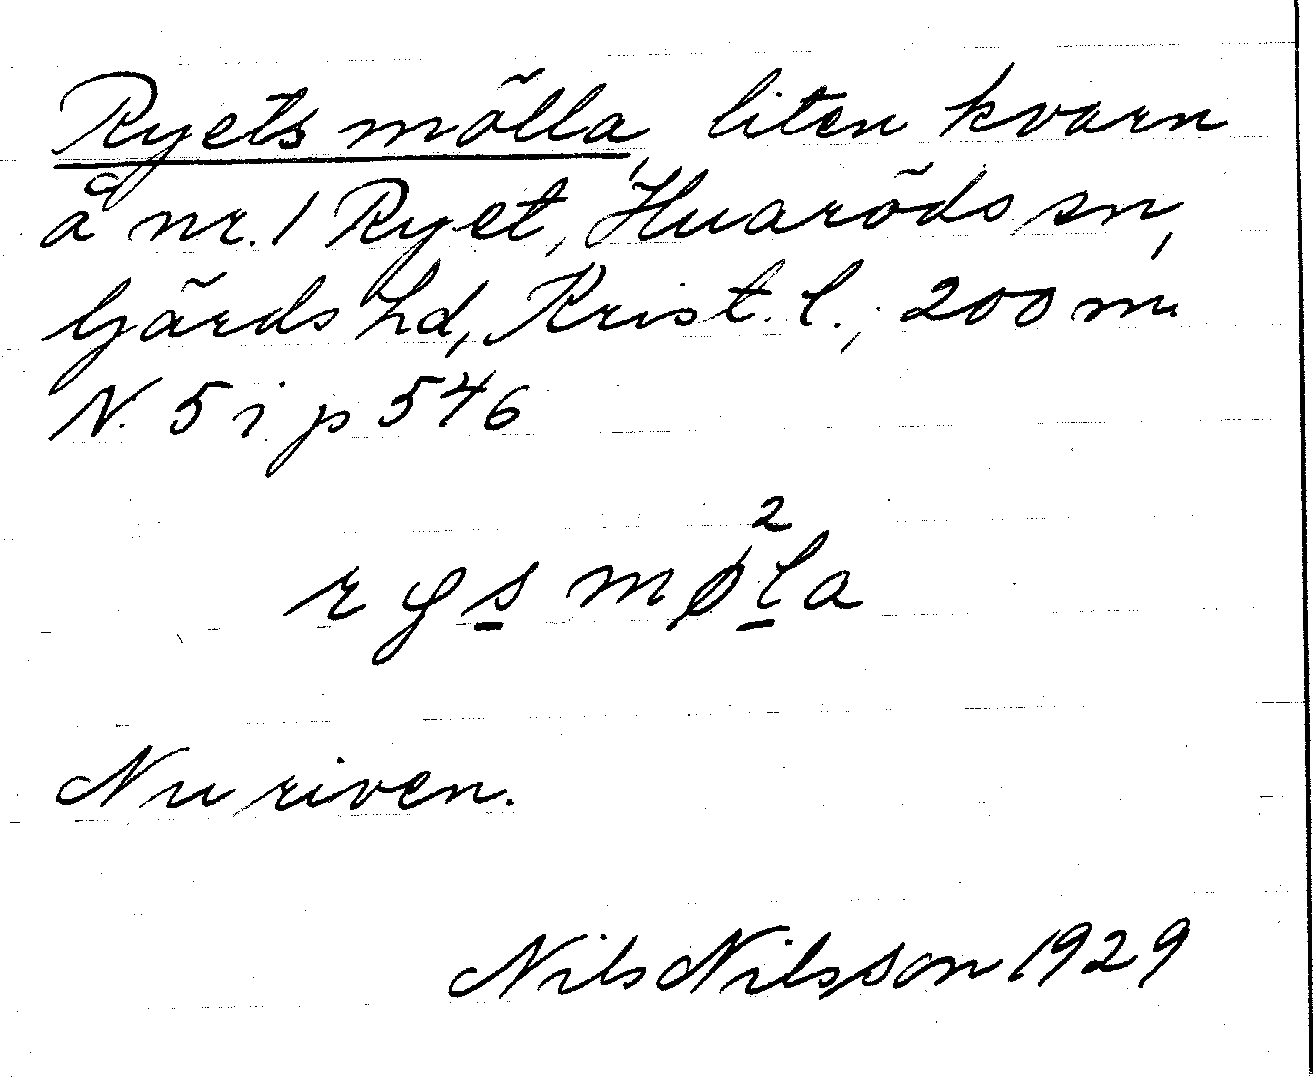 Ryets mölla, liten kvarn
å nr. 1 Ryet, Huaröds sn,
Gärds hd, Krist. l.; 200 m.
N. 5 i p 546
rys mø²la
Nu riven.
Nils Nilsson 1929